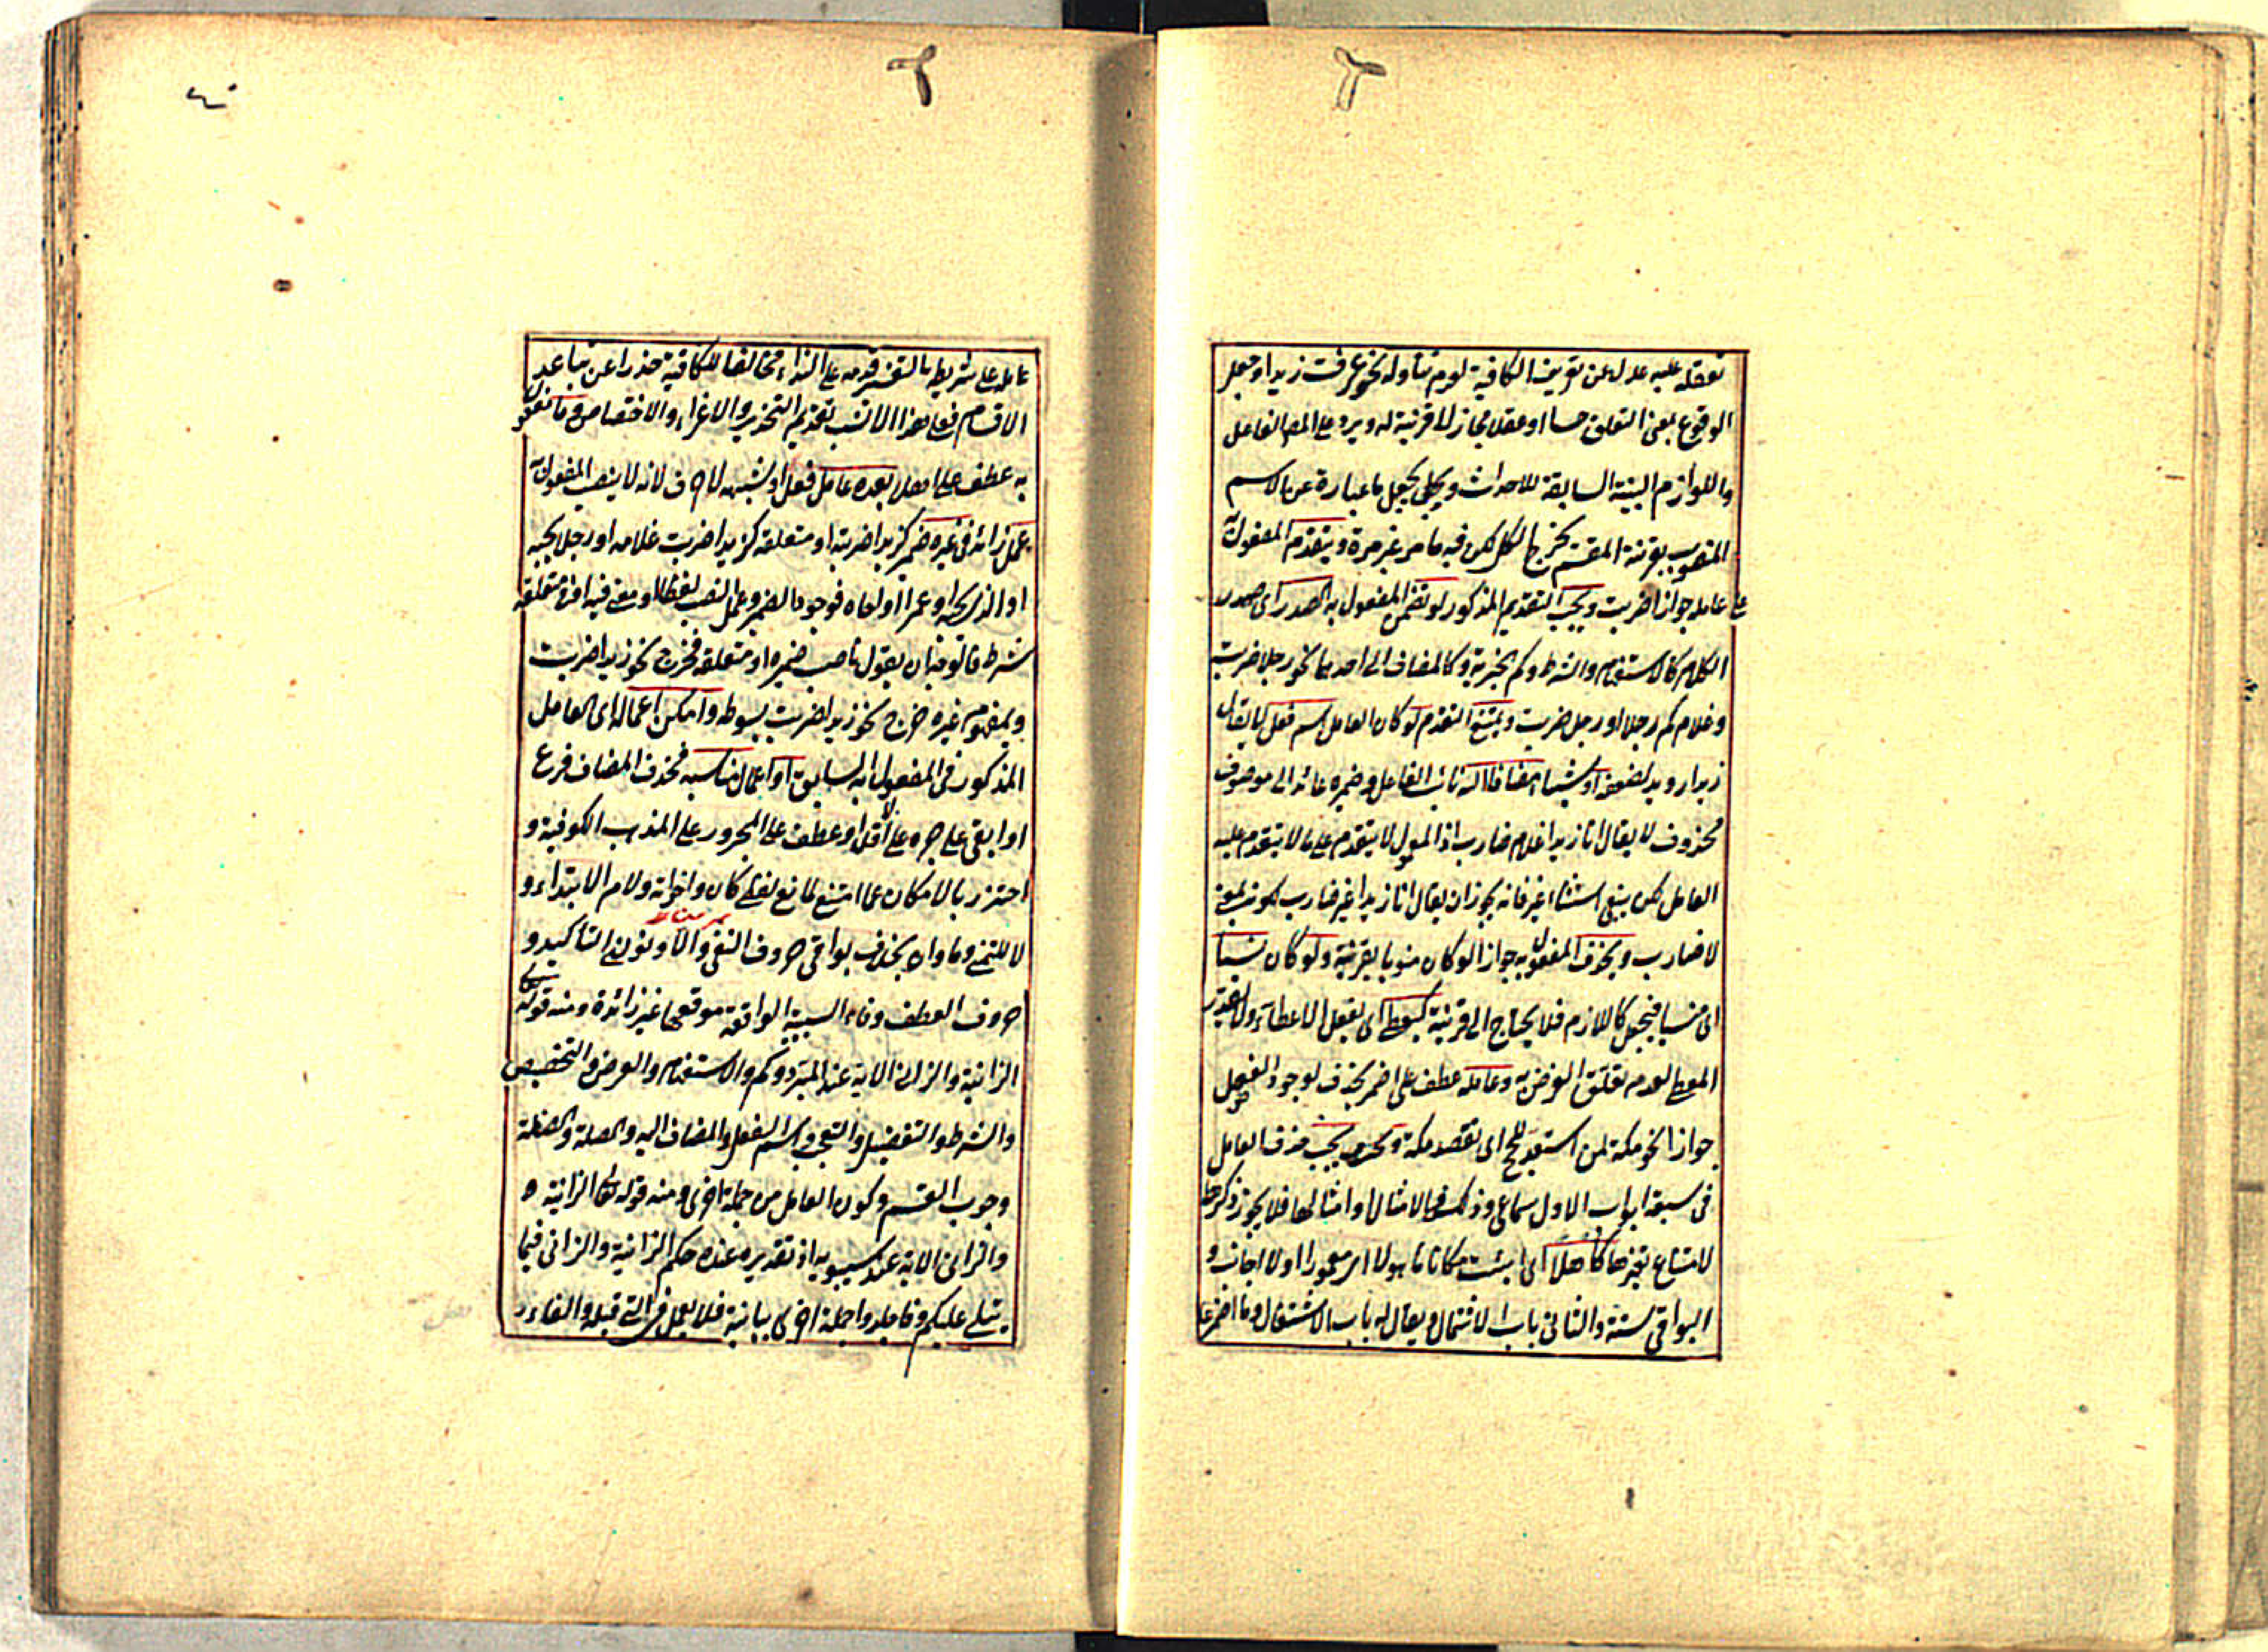 تعقله عليه عدل عن تعريف الكافية لعدم تناوله نحو عرفت زيدا وجعل
الوقوع بمعنى التعلق حسا او عقلا مجاز لا قرينة له ويرد على المص الفاعل
واللوازم البينة السابقة للاحداث ويجعل ما عبارة عن الاسم
المنصوب بقرينة المقسم يخرج الكل لكن فيه ما مر غير مرة ويتقدم المفعول به
على عامله جوازا ضربت ويجب التقديم المذكور لو تضمن المفعول به الصدر اى صدر
الكلام كالاستفهام والشرط وكم الخبرية وكالمضاف الى احدها نحو رجلا ضربت
وغلام كم رجلا او رجل ضربت ويمتنع التقدم لو كان العامل اسم فعل لا يقال
زيدا رويد لضعفه او شيئا مضافا اليه نائب الفاعل وضميره عائد الى موصوف
محذوف لا يقال انا زيدا غلام ضارب اذ المعمول لا يتقدم على ما لا يتقدم عليه
العامل لكن ينبغى استثناء غير فانه يجوز ان يقال انا زيدا غير ضارب لكونه بمعنى
لا ضارب ويحذف المفعول به جوازا لو كان منويا بقرينة ولو كان نسيا
اى منسيا فيجعل كاللازم فلا يحتاج الى قرينة كيعطى اى يفعل الاعطاء ولا يقدر
المعطى لعدم تعلق الغرض به وعامله عطف على ضمير يحذف لوجود الفصل
جوازا نحو مكة لمن استعد للحج اى تقصد مكة ويجب حذف العامل
فى سبعة ابواب الاول سماعى وذلك فى الامثال او امثالها فلا يجوز ذكرها
لامتناع تغيرها كاهلا اى اتيت مكانا ماهولا اى معمورا اولا اجانب و
البواقى ستة والثانى باب الاشتمال ويقال له باب الاشتغال وما اضمر عا
عامله على شريطة التفسير قدمه على النداء مخالفا للكافية حذرا عن تباعد
الاقسام فعلى هذا الانسب تقديم التحذير والاغراء والاختصاص وما مفعول
به عطف على اهلا بعده عامل فعل او شبهه لا حرف لانه لا ينصب المفعول به
عمل زائد فى غيره ضمير كزيدا ضربته او متعلقه كزيدا ضربت غلامه او رجلا يحبه
او الذى يحبه او عمرا او اخاه فوجود الضمير وعمل النصب لفظا او معنى فيه او فى متعلقه
شرط فالوجه ان يقول ناصب ضميره او متعلقه فخرج نحو زيدا ضربت
وبمفهوم غيره خرج نحو زيدا ضربت بسوطه وامكن اعماله اى العامل
المذكور فى المفعول به السابق او اعمال مناسبه فحذف المضاف فرع
او ابقى على جره على الاقل او عطف على المجرور على المذهب الكوفية و
احترز بالامكان عما امتنع لمانع لفظى كان واخواته ولام الابتداء و
لا للتمنى وما وان بخلاف بواقى حروف النفى والا ونونى التأكيد و
حروف العطف وفاء السببية الواقعة موقعها غير زائدة ومنه قوله تعالى
الزانية والزانى الاية عند المبرد وكم والاستفهام والعرض والتحضيض
والشرط والتفضيل والتعجب واسم الفعل والمضاف اليه والصلة والصفة
وجوب القسم وكون العامل من جملة اخرى ومنه قوله تعالى الزانية
والزانى الاية عند سيبويه اذ تقديره عنده حكم الزانية والزانى فيما
يتلى عليكم وفاجلدوا جملة اخرى بيانية فلا يعمل فى التى قبله والفاء